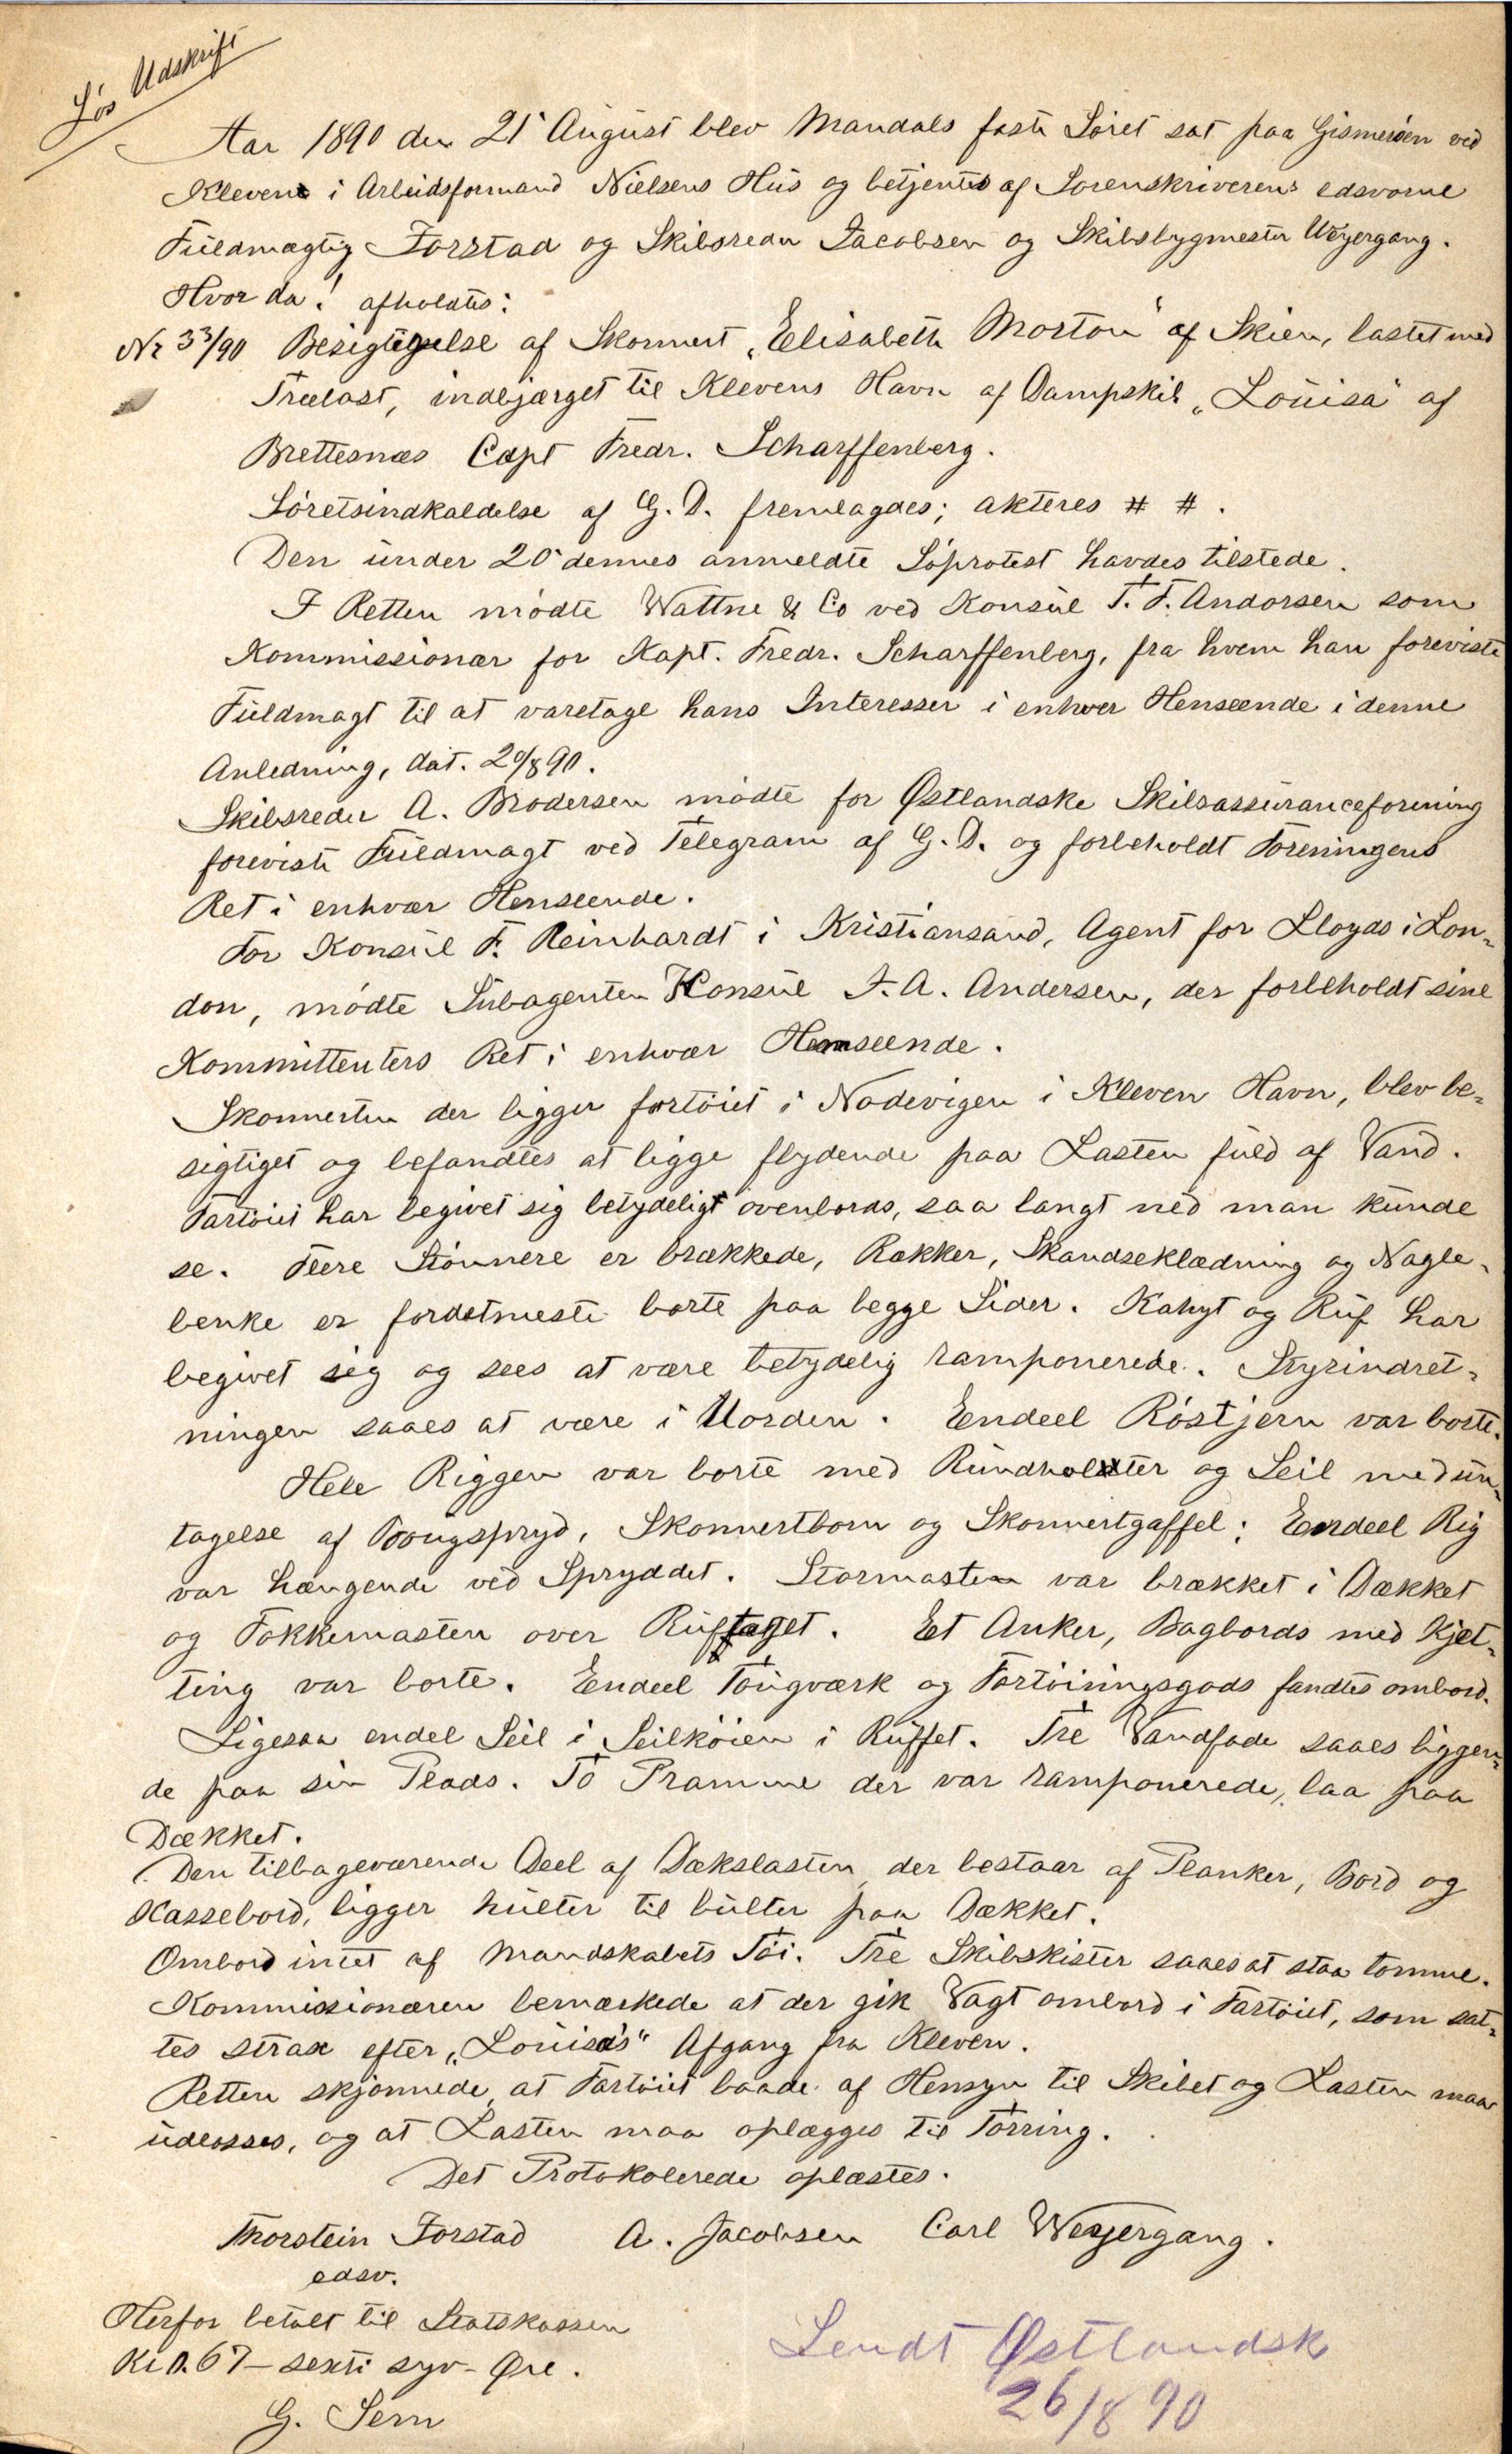 Løs Udskrift
Aar 1890 den 21 August blev Mandals faste Søret sat paa Gismerøen ved
Kleven i Arbeidsformand Nielsens Hus og betjentes af Sorenskriverens edsvorne
Fuldmægtig Forstad og Skibsreder Jacobsen og Skibsbygmester Weyergang.
Hvor da! afholdtes:
Nr 33/90 Besigtigelse af Skonnert „Elisabeth Morton" af Skien, lastet med
Trælast, indbjærget til Klevens Havn af Dampskib „Louisa" af
Brettesnæs Capt Fredr. Scharffenberg.
Søretsindkaldelse af G. D. fremlagdes; akteres # #.
Den under 20 dennes anmeldte Søprotest havdes tilstede.
I Retten mødte Wattne & Co ved Konsul T. F. Andorsen som
Kommissionær for Kapt. Fredr. Scharffenberg, fra hvem han foreviste
Fuldmagt til at varetage hans Interesser i enhver Henseende i denne
Anledning, dat. 20/8 90.
Skibsreder A. Brodersen mødte for Østlandske Skibsassuranceforening
foreviste Fuldmagt ved Telegram af G. D. og forbeholdt Foreningens
Ret i enhvær Henseende.
For Konsul F. Reinhardt i Kristiansand, Agent for Lloyds i Lon-
don, mødte Subagenten Konsul F. A. Andersen, der forbeholdt sine
Kommittenters Ret i enhvær Henseende.
Skonnerten der ligger fortøiet i Nodevigen i Kleven Havn, blev be-
sigtiget og befandtes at ligge flydende paa Lasten fuld af Vand.
Fartøiet har begivet sig betydeligt ovenbords, saa langt ned man kunde
se. Flere Stønnere er brækkede, Rækker, Skandseklædning og Nagle-
benke er fordetmeste borte paa begge Sider. Kahyt og Ruf har
begivet sig og sees at være betydelig ramponerede. Styrindret-
ningen saaes at være i Uorden. Endeel Røstjern var borte.
Hele Riggen var borte med Rundholter og Seil med un-
tagelse af Bougspryd, Skonnertbom og Skonnertgaffel; Endeel Rig
var hængende ved Spryddet. Stormasten var brækket i Dækket
og Fokkemasten over Ruftaget. Et Anker, Bagbords med Kjet-
ting var borte. Endeel Tougværk og Fortøiningsgods fandtes ombord.
Ligesaa endel Seil i Seilkøien i Ruffet. Tre Vandfade saaes liggen-
de paa sin Plads. To Pramme der var ramponerede, laa paa
Dækket.
Den tilbageværende Deel af Dækslasten der bestaar af Planker, Bord og
Kassebord, ligger hulter til bulter paa Dækket.
Ombord intet af Mandskabets Tøi. Tre Skibskister saaes at staa tomme.
Kommissionæren bemærkede at der gik Vagt ombord i Fartøiet, som sat-
tes strax efter „Louisa's" Afgang fra Kleven.
Retten skjønnede, at Fartøiet baade af Hensyn til Skibet og Lasten maa
udlosses, og at Lasten maa oplægges til Tørring.
Det Protokolerede oplæstes.
Thorstein Forstad A. Jacobsen Carl Weyergang.
edsv.
Herfor betalt til Statskassen
Kr 0.67 - sexti syv - Øre.
G. Sem
Sendt Østlandsk
26/8 90